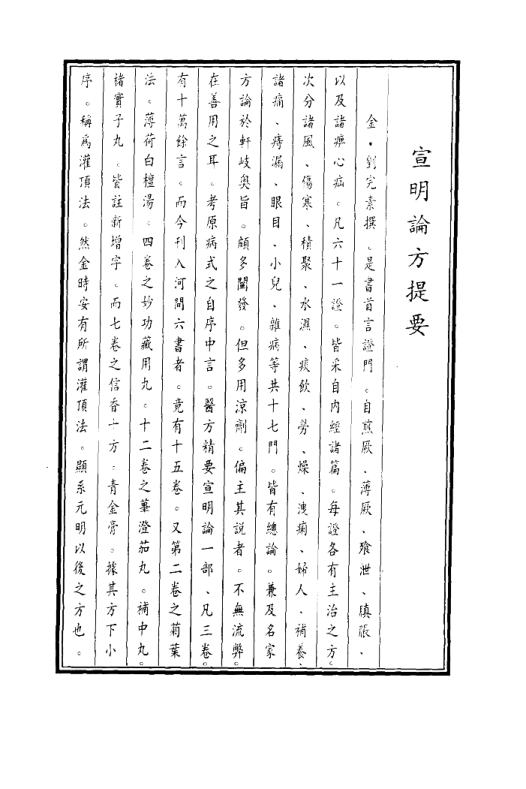 宣明論方提要
金．劉完素撰。是書首言證門。自煎厥、薄厥、飱泄、䐜脹、
以及諸痺心疝。凡六十一證。皆采自內經諸篇。每證各有主治之方。
次分諸風、傷寒、積聚、水濕、痰飲、勞、燥、洩痢、婦人、補養、
諸痛、痔漏、眼目、小兒、雜病等共十七門。皆有總論。兼及名家
方論於軒岐奧旨。頗多闡發。但多用涼劑。偏主其說者。不無流弊。
在善用之耳。考原病式之自序中言。醫方精要宣明論一部、凡三卷。
有十萬餘言。而今刊入河間六書者。竟有十五卷。又第二卷之菊葉
法。薄荷白檀湯。四卷之妙功藏用丸。十二卷之蓽澄茄丸。補中丸。
楮實子丸。皆註新增字。而七卷之信香十方。青金膏。據其方下小
序。稱爲灌頂法。然金時安有所謂灌頂法。顯系元明以後之方也。